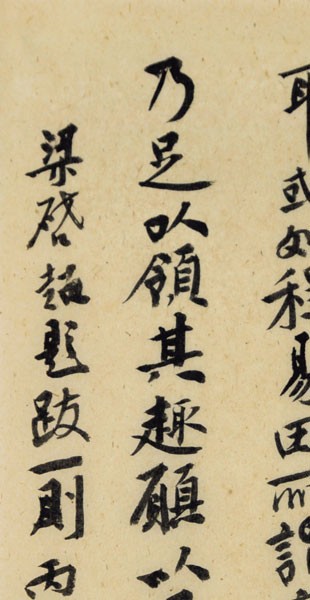 耶或如程易田所
乃足以領其趣願以
梁啓超題跋一則丙